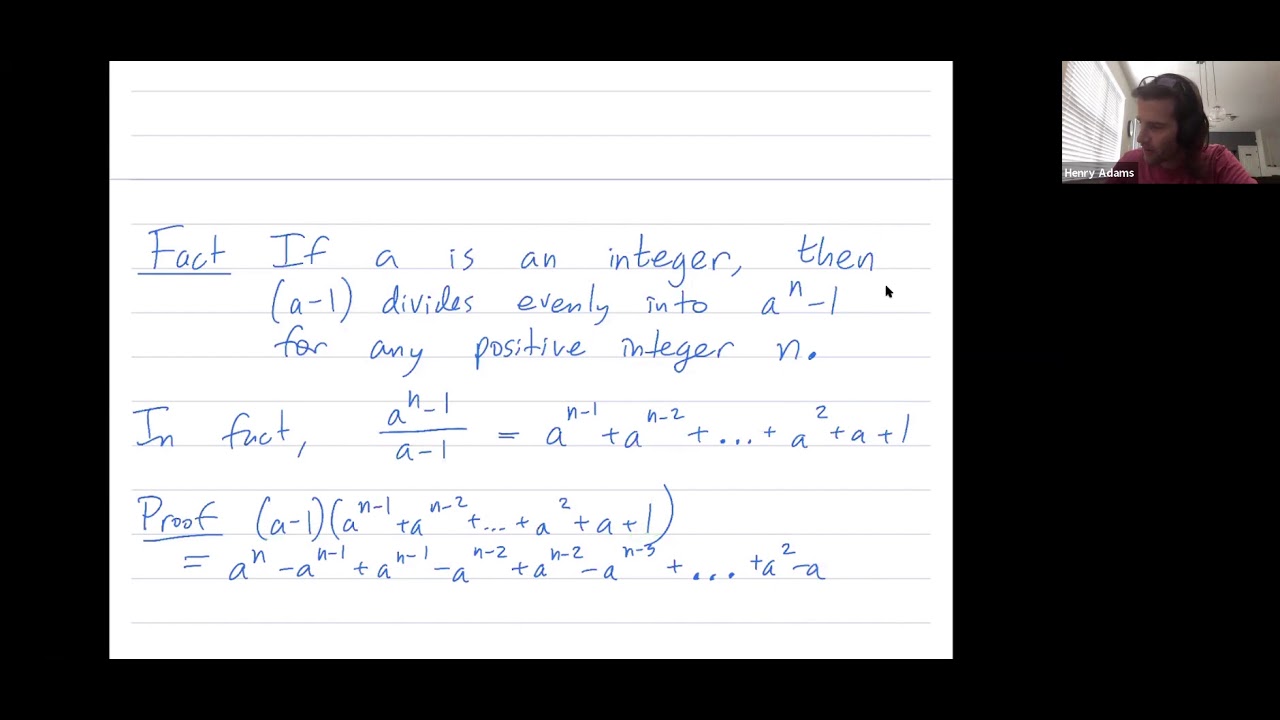 Fact If a is an integer, then
(a-1) divides evenly into a^n-1
for any positive integer n.
In fact, \frac{a^n-1}{a-1} = a^{n-1}+a^{n-2}+...+a^2+a+1
Proof (a-1)(a^{n-1}+a^{n-2}+...+a^2+a+1)
= a^n-a^{n-1}+a^{n-1}-a^{n-2}+a^{n-2}-a^{n-3}+...+a^2-a
Henry Adams